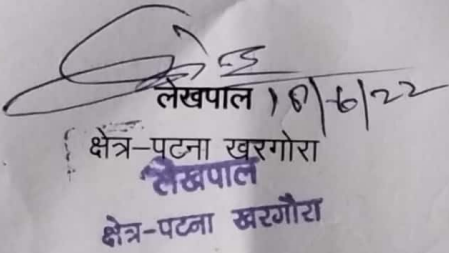 लेखपाल 18/6/22
क्षेत्र-पटना खरगोरा
लेखपाल
क्षेत्र-पटना खरगौरा